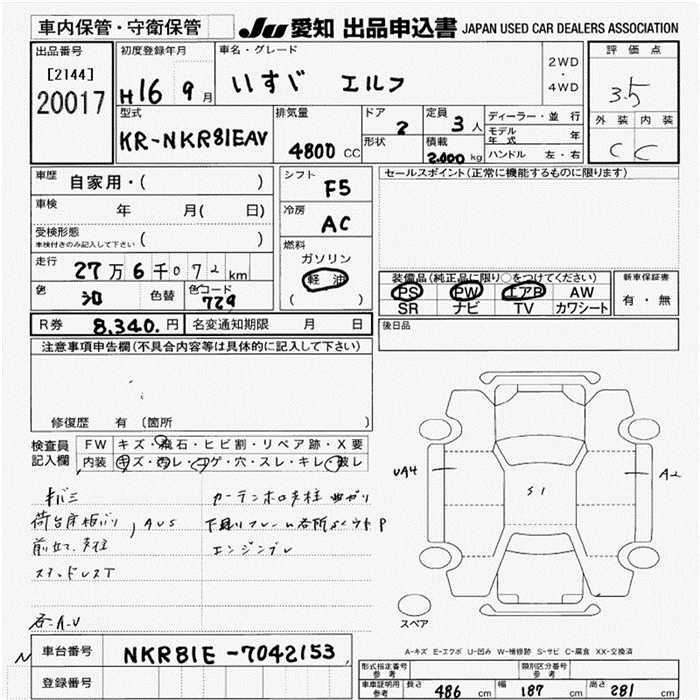 車内保管・守衛保管
Ju 愛知 出品申込書 JAPAN USED CAR DEALERS ASSOCIATION
出品番号
[2144]
20017
初度登録年月
H16 9月
車名・グレード
いすゞ エルフ
2WD
・
4WD
評価点
3.5
外装 内装
C C
型式
KR-NKR81EAV
排気量
4800 CC
ドア
2
形状
定員
3人
積載
2.000 kg
ディーラー・並行
モデル年式 年
ハンドル 左・右
車歴 自家用・( )
車検 年 月( 日)
受検形態
車検付きのみ記入して下さい ( )
走行 27万6千072km
色 色替 色コード 729
シフト
F5
冷房
AC
燃料
ガソリン
軽油
( )
セールスポイント(正常に機能するものに限ります)
装備品(純正品に限り○をつけてください)
PS PW エアB AW
SR ナビ TV カワシート
新車保証書
有・無
R券 8,340.円 名変通知期限 月 日
後日品
注意事項申告欄(不具合内容等は具体的に記入して下さい)
修復歴 有(箇所
検査員記入欄
FW キズ・飛石・ヒビ割・リペア跡・X要
内装 キズ・汚レ・コゲ・穴・スレ・キレ・破レ
荷台床板バリ, AUS
エンジンブレ
UA4
S1
A2
スペア
A-キズ E-エクボ U-凹み W-補修跡 S-サビ C-腐食 XX-交換済
車台番号 NKR81E-7042153
登録番号
形式指定番号 参考
類別区分番号 参考
車車証明用 参考 長さ 486 cm 幅 187 cm 高さ 281 cm